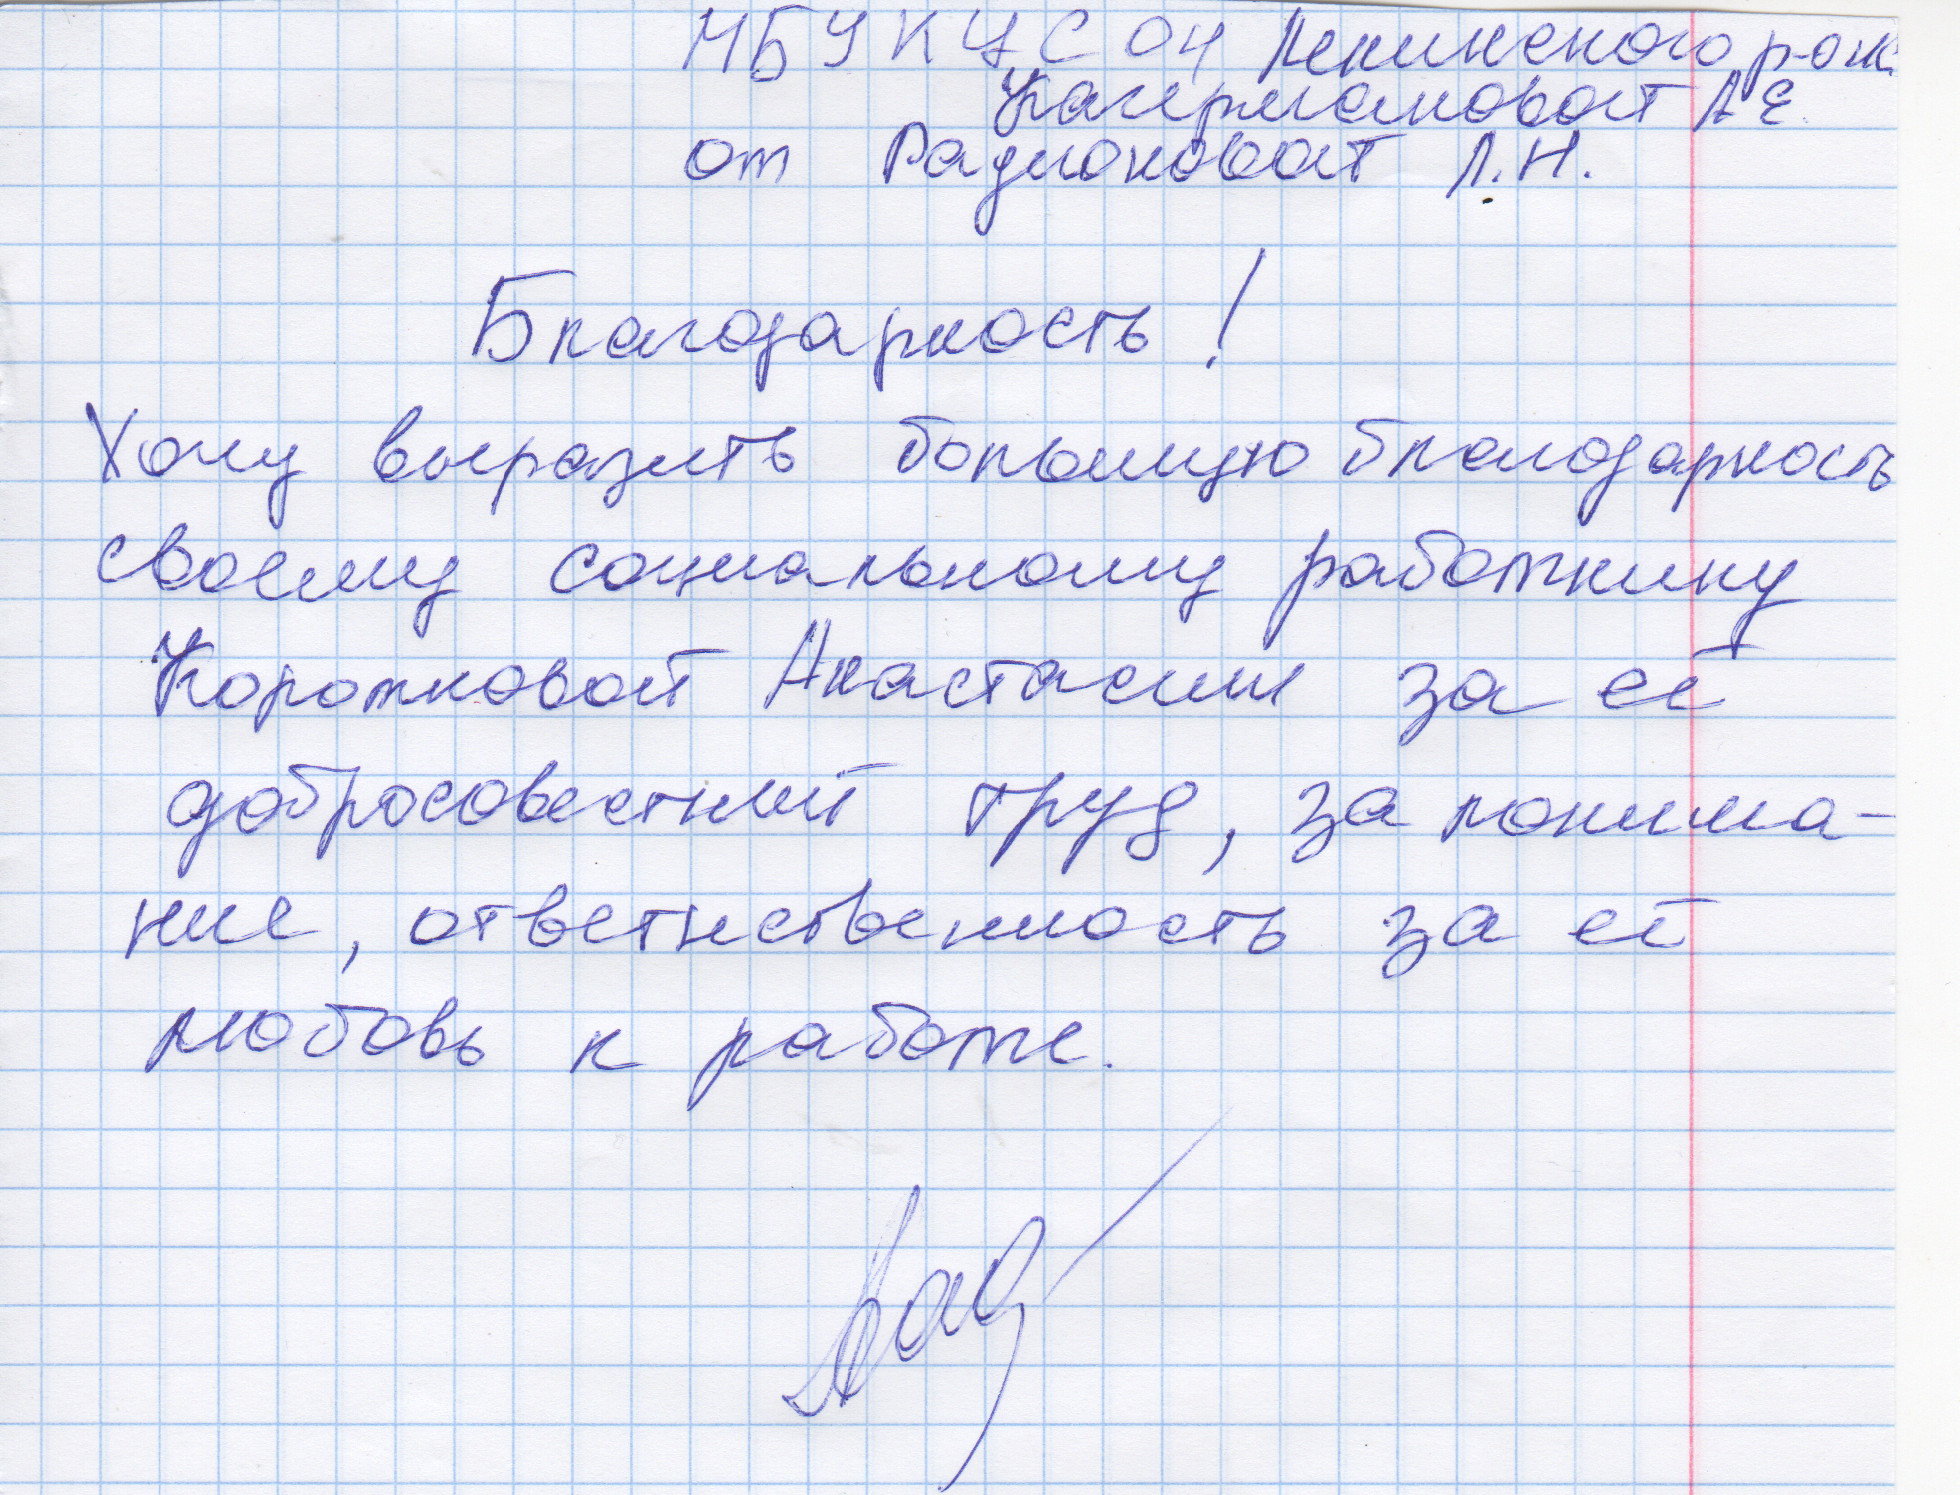 МБУ КЦСОН Ленинского р-она
Кагермановой А.Е.
от Радионовой Л.Н.
Благодарность!
Хочу выразить большую благодарность
своему социальному работнику
Коротковой Анастасии за её
добросовестный труд, за понима-
ние, ответственность за её
любовь к работе.